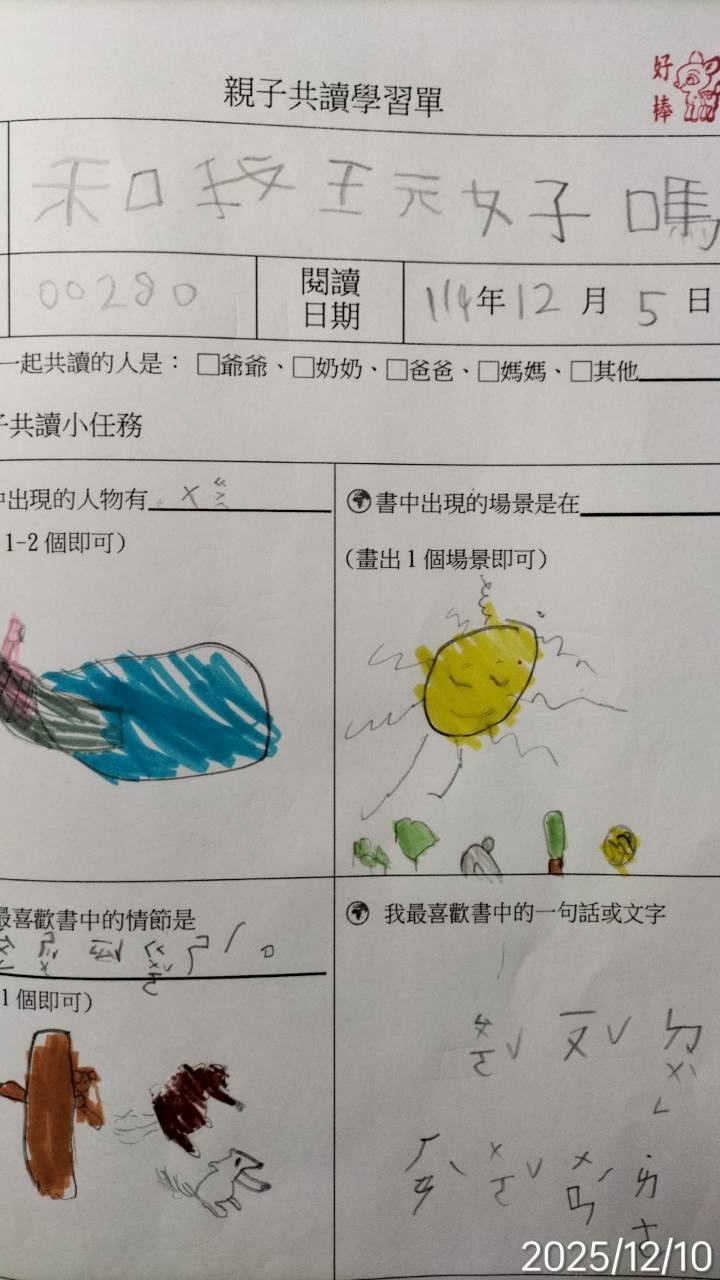 親子共讀學習單
好棒
和我玩好嗎
00280
閱讀日期
114年12月5日
一起共讀的人是：□爺爺、□奶奶、□爸爸、□媽媽、□其他
子共讀小任務
中出現的人物有
1-2 個即可）
書中出現的場景是在
（畫出 1 個場景即可）
最喜歡書中的情節是
1 個即可）
我最喜歡書中的一句話或文字
2025/12/10